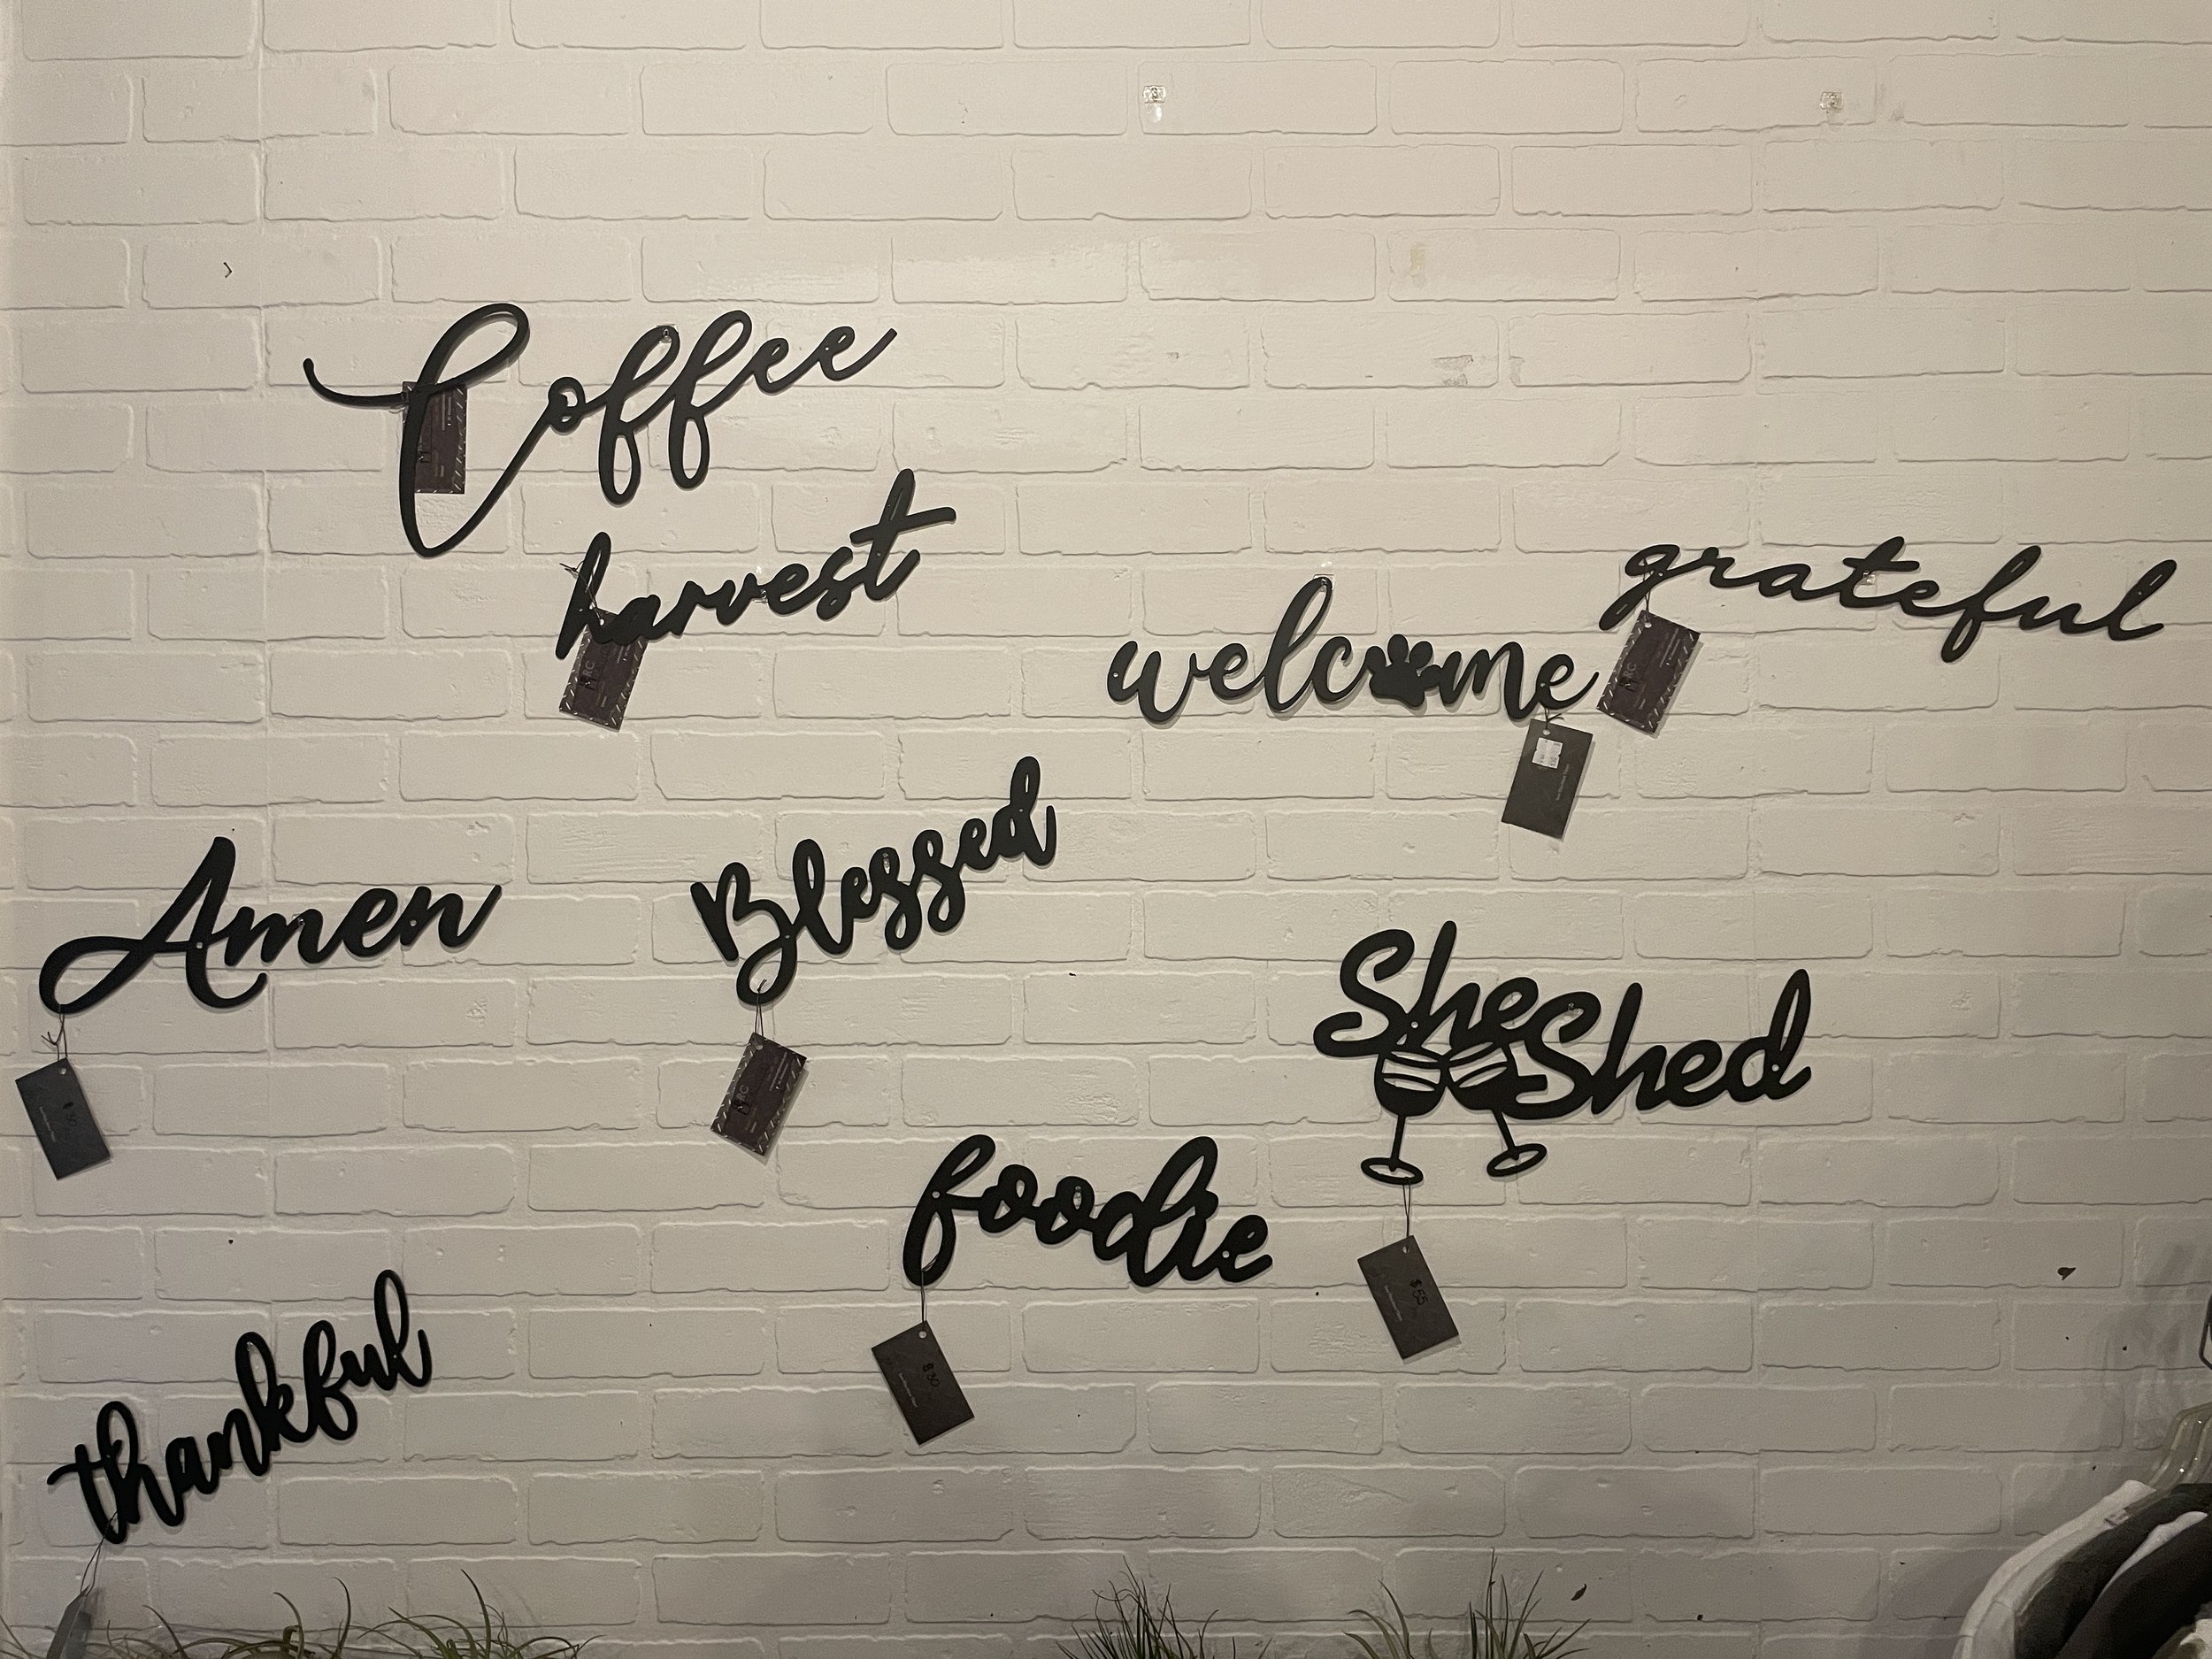 Coffee
harvest
grateful
welcome
Amen
Blessed
She
Shed
foodie
$30
$55
thankful